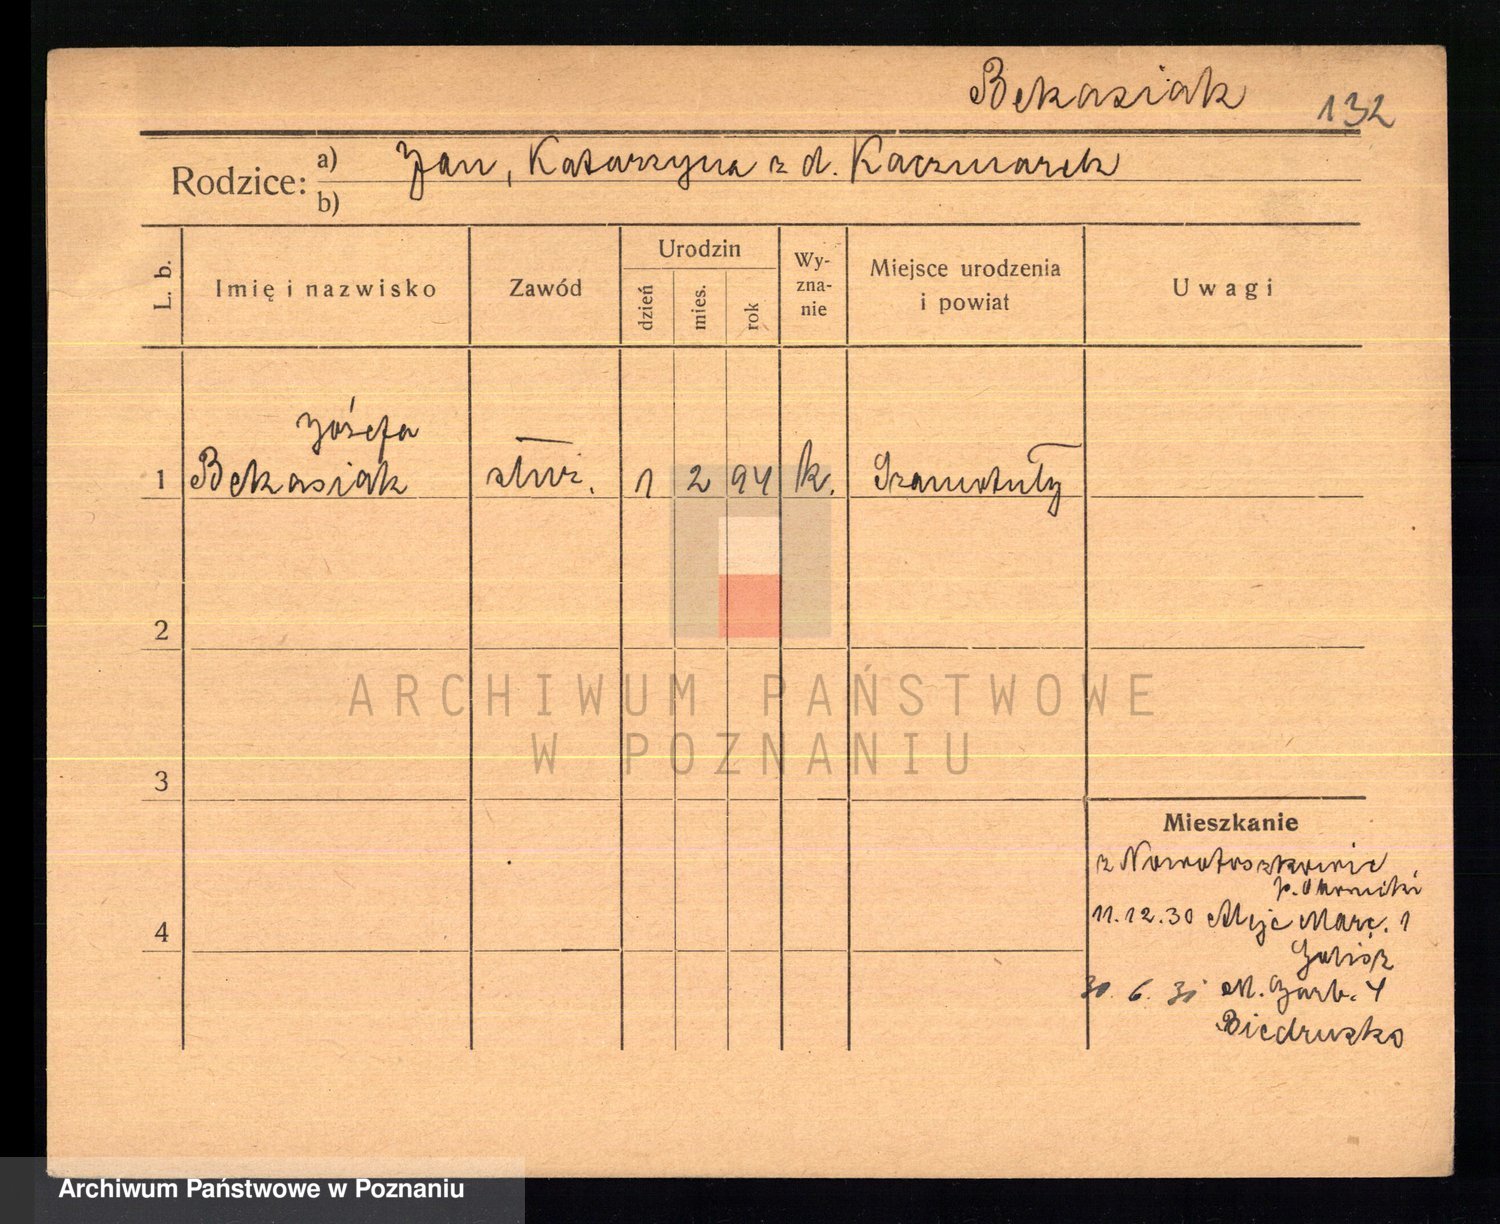 Bekasiak 132
Rodzice: a) Jan, Katarzyna z d. Kaczmarek
b)
L. b.
Imię i nazwisko
Zawód
Urodzin
dzień
mies.
rok
Wy-
zna-
nie
Miejsce urodzenia
i powiat
Uwagi
Józefa
1 Bekasiak służ. 1 2 94 k. Szamotuły
2
ARCHIWUM PAŃSTWOWE
W POZNANIU
3
Mieszkanie
z
11.12.30 Marc. 1
4
30. 6. 31 Garb. 4
Biedrusko
Archiwum Państwowe w Poznaniu